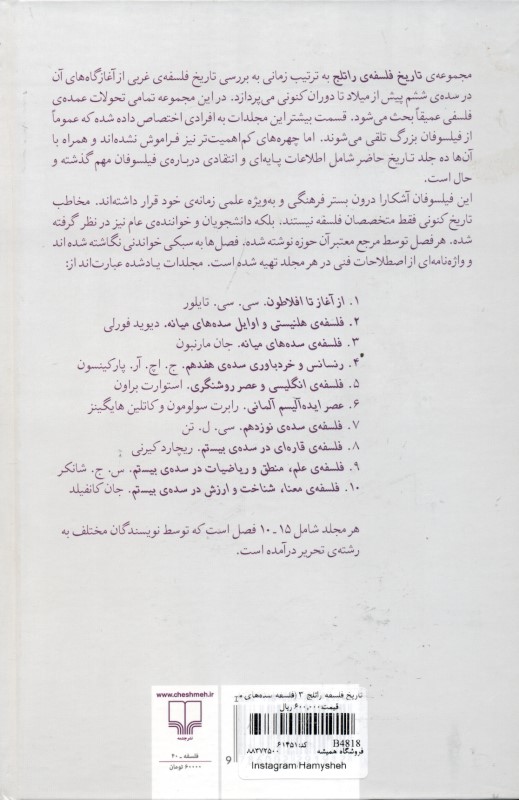 مجموعه‌ی تاریخ فلسفه‌ی راتلج به ترتیب زمانی به بررسی تاریخ فلسفه‌ی غربی از آغازگاه‌های آن
در سده‌ی ششم پیش از میلاد تا دوران کنونی می‌پردازد. در این مجموعه تمامی تحولات عمده‌ی
فلسفی عمیقاً بحث می‌شود. قسمت بیشتر این مجلدات به افرادی اختصاص داده شده که عموماً
از فیلسوفان بزرگ تلقی می‌شوند. اما چهره‌های کم‌اهمیت‌تر نیز فراموش نشده‌اند و همراه با
آن‌ها ده جلد تاریخ حاضر شامل اطلاعات پایه‌ای و انتقادی درباره‌ی فیلسوفان مهم گذشته و
حال است.
این فیلسوفان آشکارا درون بستر فرهنگی و به‌ویژه علمی زمانه‌ی خود قرار داشته‌اند. مخاطب
تاریخ کنونی فقط متخصصان فلسفه نیستند، بلکه دانشجویان و خواننده‌ی عام نیز در نظر گرفته
شده. هر فصل توسط مرجع معتبر آن حوزه نوشته شده. فصل‌ها به سبکی خواندنی نگاشته شده اند
و واژه‌نامه‌ای از اصطلاحات فنی در هر مجلد تهیه شده است. مجلدات یادشده عبارت‌اند از:
۱. از آغاز تا افلاطون. سی. سی. تایلور
۲. فلسفه‌ی هلنیستی و اوایل سده‌های میانه. دیوید فورلی
۳. فلسفه‌ی سده‌های میانه. جان مارنبون
۴. رنسانس و خردباوری سده‌ی هفدهم. ج. اچ. آر. پارکینسون
۵. فلسفه‌ی انگلیسی و عصر روشنگری. استوارت براون
۶. عصر ایده‌آلیسم آلمانی. رابرت سولومون و کاتلین هایگینز
۷. فلسفه‌ی سده‌ی نوزدهم. سی. ل. تن
۸. فلسفه‌ی قاره‌ای در سده‌ی بیستم. ریچارد کیرنی
۹. فلسفه‌ی علم، منطق و ریاضیات در سده‌ی بیستم. س. ج. شانکر
۱۰. فلسفه‌ی معنا، شناخت و ارزش در سده‌ی بیستم. جان کانفیلد
هر مجلد شامل ۱۵ ـ ۱۰ فصل است که توسط نویسندگان مختلف به
رشته‌ی تحریر درآمده است.
www.cheshmeh.ir
نشر چشمه
فلسفه ـ ۲۰
۶۰۰۰۰ تومان
تاریخ فلسفه راتلج ۳ (فلسفه سده‌های
قیمت: ۶۰۰,۰۰۰ ریال
B4818 کد: ۶۱۴۵۱
فروشگاه همیشه ۸۸۳۷۲۵۰۰
Instagram:Hamysheh
9